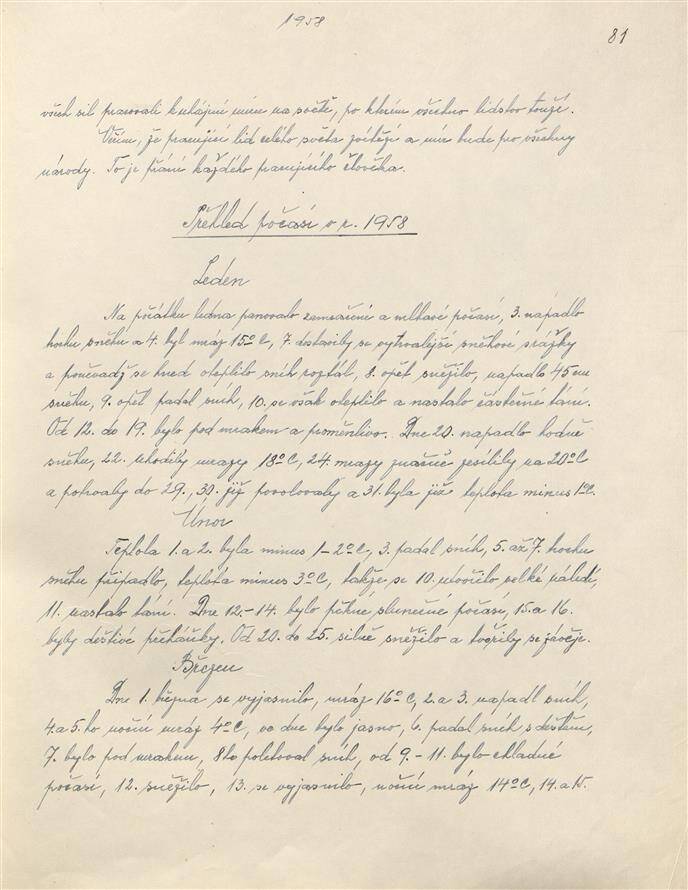 1958
81
všech sil pracovali k uhájení míru na světě, po kterém všechno lidstvo touží.
Věřím, že pracující lid celého světa zvítězí a mír bude pro všechny
národy. To je přání každého pracujícího člověka.
Přehled počasí v r. 1958
Leden
Na počátku ledna panovalo zamračené a mlhavé počasí, 3. napadlo
trochu sněhu a 4. byl mráz 15°C, 7. dostavily se vytrvalejší sněhové srážky
a poněvadž se hned oteplilo sníh roztál, 8. opět sněžilo, napadlo 45 cm
sněhu, 9. opět padal sníh, 10. se však oteplilo a nastalo částečné tání.
Od 12. do 19. bylo pod mrakem a proměnlivo. Dne 20. napadlo hodně
sněhu, 22. uhodily mrazy 18°C, 24. mrazy značně zesílily na 20°C
a potrvaly do 29., 30. již povolovaly a 31. byla již teplota minus 1°C.
Únor
Teplota 1. a 2. byla minus 1-2°C, 3. padal sníh, 5. až 7. trochu
sněhu připadlo, teplota minus 3°C, takže se 10. utvořilo velké náledí,
11. nastalo tání. Dne 12.-14. bylo pěkné slunečné počasí, 15. a 16.
byly deštivé přeháňky. Od 20. do 25. silně sněžilo a tvořily se závěje.
Březen
Dne 1. března se vyjasnilo, mráz 16°C, 2. a 3. napadl sníh,
4. a 5. ho noční mráz 4°C, ve dne bylo jasno, 6. padal sníh s deštěm,
7. bylo pod mrakem, 8ho poletoval sníh, od 9. - 11. bylo chladné
počasí, 12. sněžilo, 13. se vyjasnilo, noční mráz 14°C, 14. a 15.